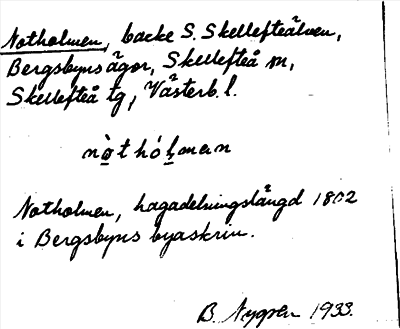 Notholmen, backe S. Skellefteälven,
Bergsbyns ägor, Skellefteå m,
Skellefteå tg, Västerb. l.
nò̲t hó̲ḷmen
Notholmen, hagadelningslängd 1802
i Bergsbyns byaskrin.
B. Nygren 1933.